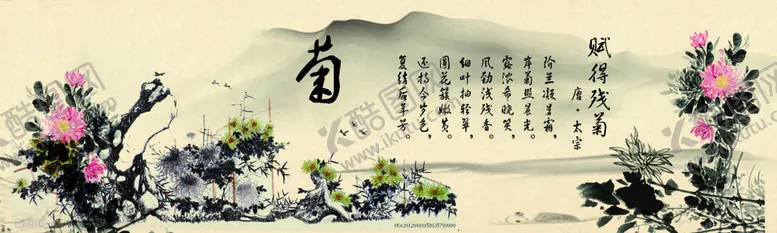 赋得残菊
唐·太宗
阶兰凝暑霜，
岸菊照晨光。
露浓希晓笑，
风劲浅残香。
细叶抽轻翠，
圆花簇嫩黄。
还持今岁色，
复结后年芳。
菊